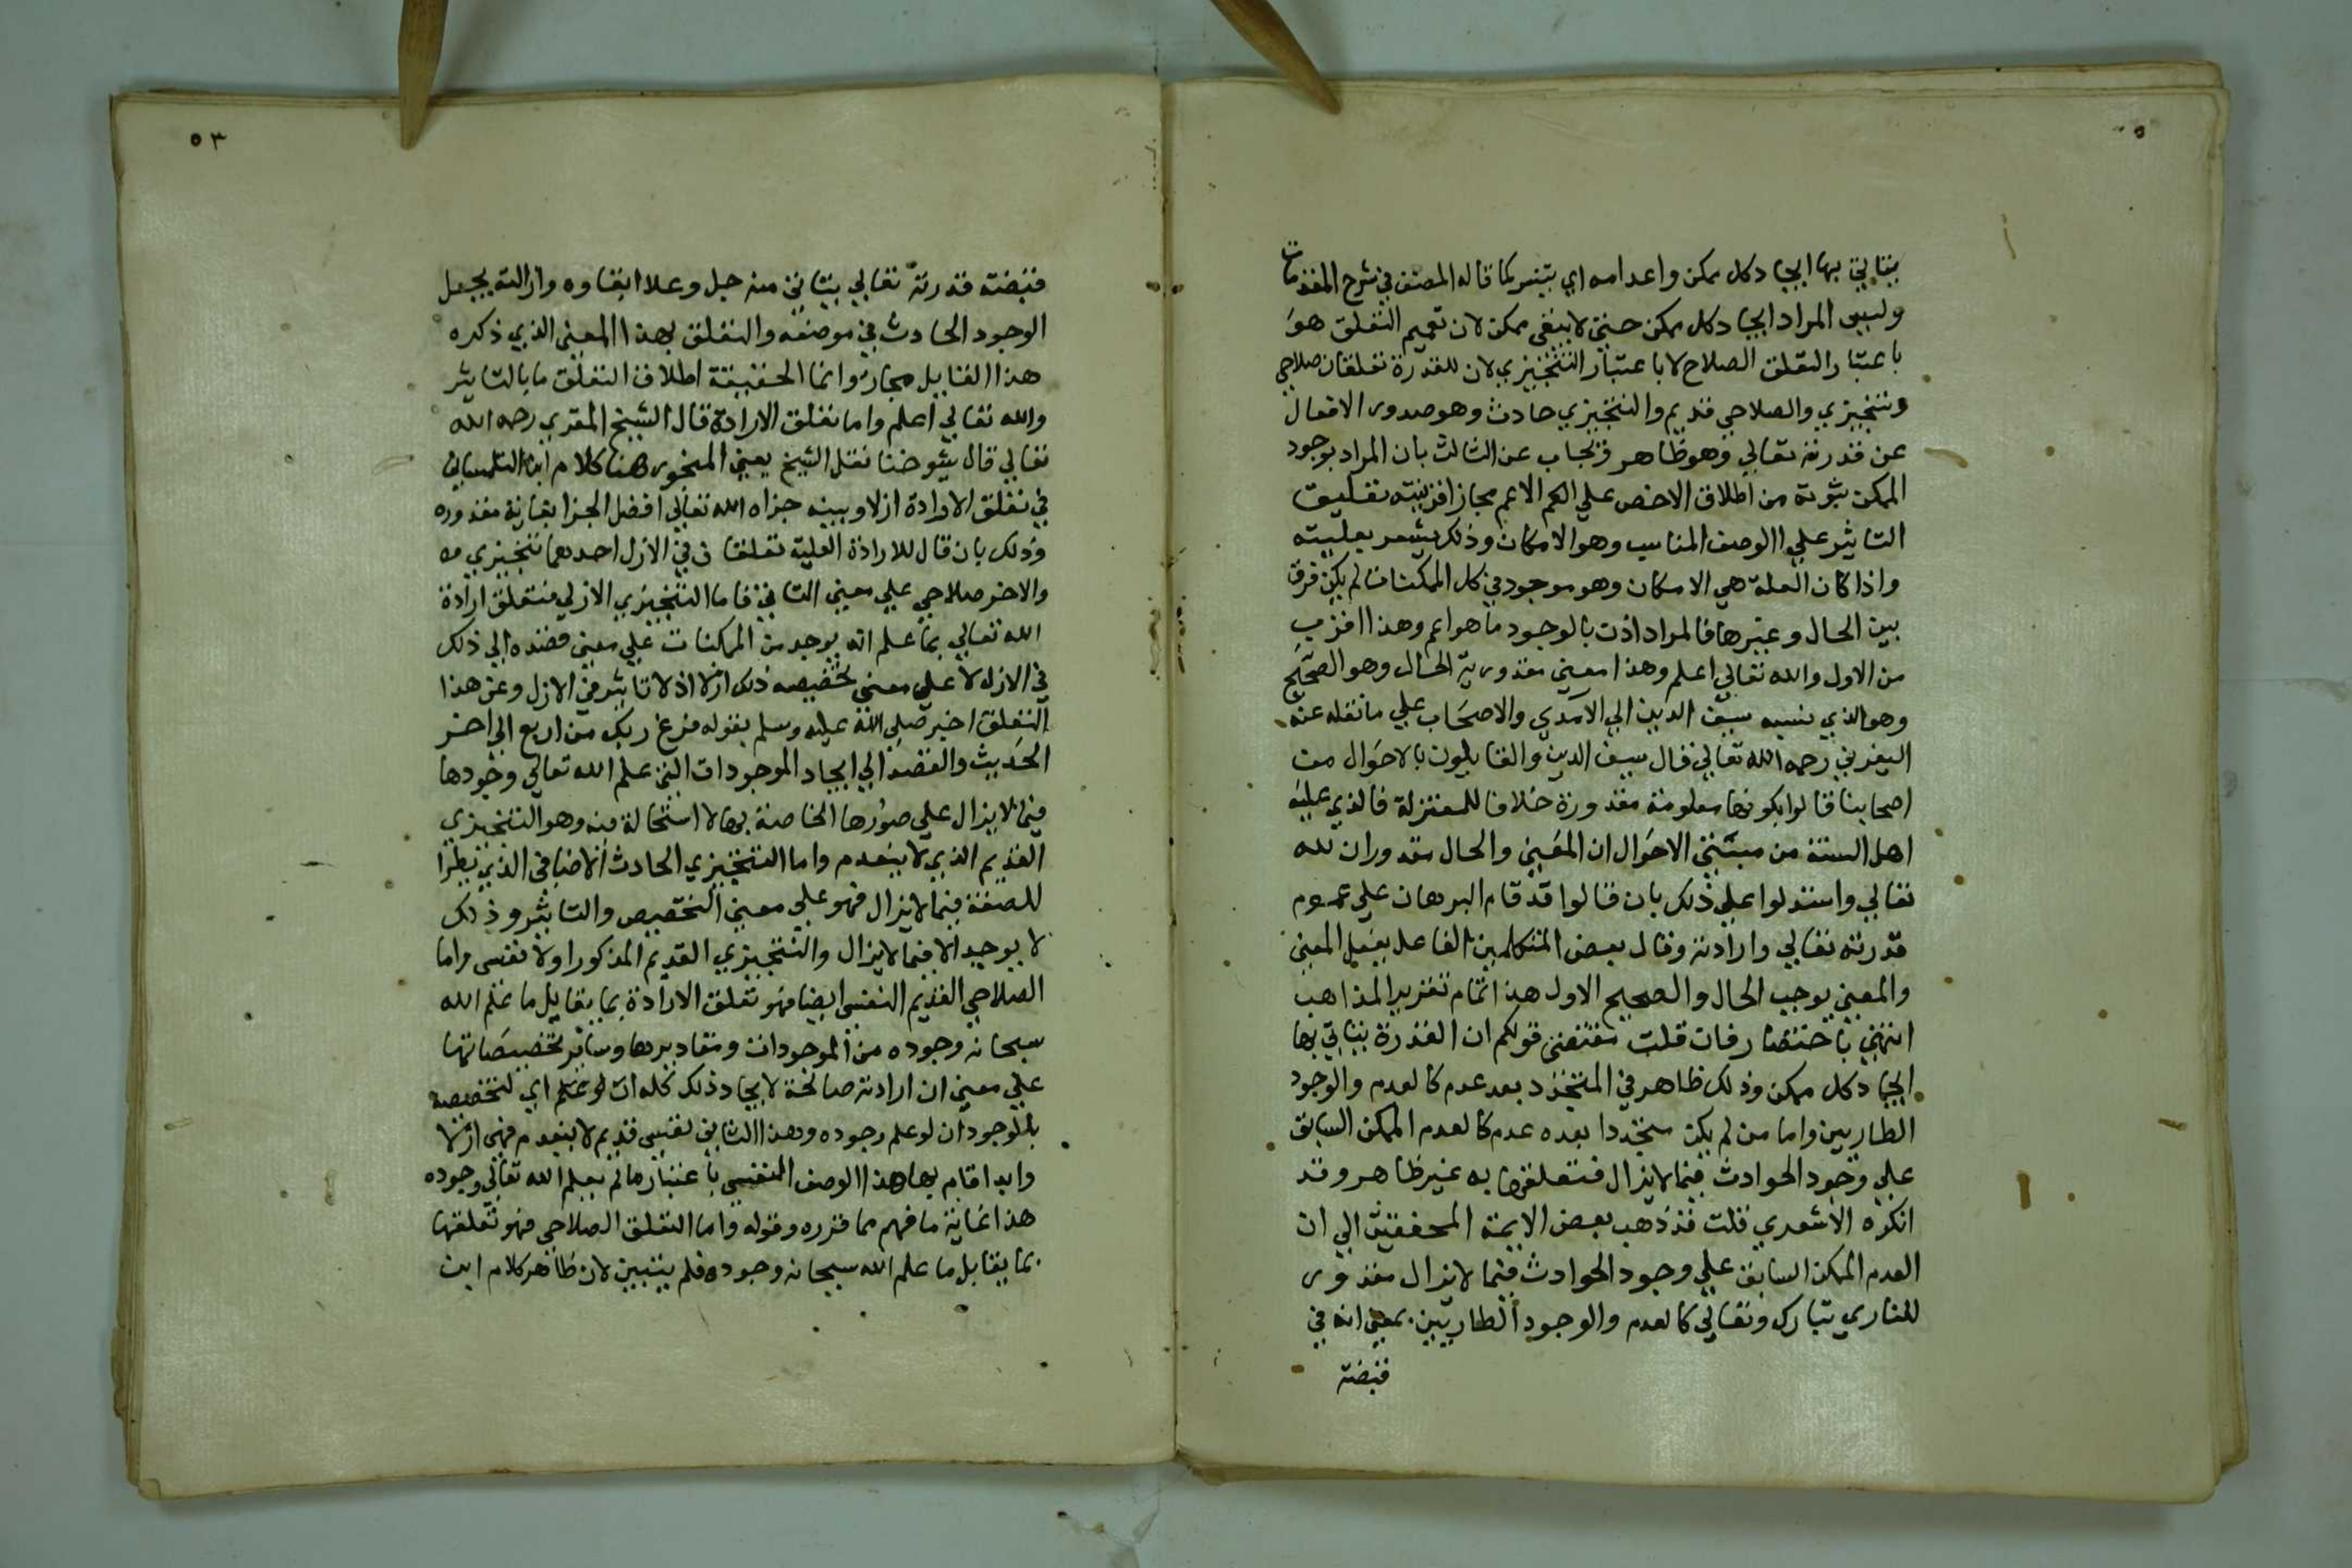 يتاتى بها ايجاد كل ممكن واعدامه اي يتيسر كما قاله المصنف في شرح المقدمات
وليس المراد ايجاد كل ممكن حتى لا يبقى ممكن لان تعميم التعلق هو
باعتبار التعلق الصلاحي لا باعتبار التنجيزي لان للقدرة تعلقان صلاحي
وتنجيزي والصلاحي قديم والتنجيزي حادث وهو صدور الافعال
عن قدرته تعالي وهو ظاهر ويجاب عن الثالث بان المراد بوجود
الممكن ثبوته من اطلاق الاخص علي الاعم مجازا قرينته تعليق
التاثير علي الوصف المناسب وهو الامكان وذلك يشعر بعليته
واذا كان العلة هي الامكان وهو موجود في كل الممكنات لم يكن فرق
بين الحال وغيرها فالمراد اذن بالوجود ما هو اعم وهذا اقرب
من الاول والله تعالي اعلم وهذا معنى مقدورية الحال وهو الصحيح
وهو الذي نسبه سيف الدين الي الآمدي والاصحاب علي ما نقله عنه
اليفرني رحمه الله تعالي قال سيف الدين والقايلون بالاحوال من
اصحابنا قالوا بكونها معلومة مقدورة خلافا للمعتزلة فالذي عليه
اهل السنة من مثبتي الاحوال ان المعنى والحال مقدوران لله
تعالي واستدلوا علي ذلك بان قالوا قد قام البرهان علي عموم
قدرته تعالي وارادته وقال بعض المتكلمين الفاعل يفعل المعنى
والمعنى يوجب الحال والصحيح الاول هذا تمام تقرير المذاهب
انتهي باختصار فان قلت مقتضى قولكم ان القدرة يتاتى بها
ايجاد كل ممكن وذلك ظاهر في المتجدد بعد عدم كالعدم والوجود
الطاريين واما من لم يكن متجددا بعده عدم كالعدم الممكن السابق
علي وجود الحوادث فيما لا يزال فتعلقها به غير ظاهر وقد
انكره الاشعري قلت قد ذهب بعض الايمة المحققين الي ان
العدم الممكن السابق علي وجود الحوادث فيما لا يزال مقدور
للباري تبارك وتعالي كالعدم والوجود الطاريين بمعنى انه في
قبضة
٥٣
قبضة قدرته تعالي يتاتى منه جل وعلا ابقاوه وازالته بجعل
الوجود الحادث في موضعه والتعلق بهذا المعنى الذي ذكره
هذا القايل مجاز وانما الحقيقة اطلاق التعلق ما بالتاثير
والله تعالي اعلم واما تعلق الارادة قال الشيخ المقري رحمه الله
تعالي قال شيوخنا نقل الشيخ يعني المنجور هنا كلام ابن التلمساني
في تعلق الارادة ازلا وبينه جزاه الله تعالي افضل الجزا بغاية مقدوره
وذلك بان قال للارادة العلية تعلقان في الازل احدهما تنجيزي
والاخر صلاحي علي معنى التاتي فاما التنجيزي الازلي فتعلق ارادة
الله تعالي بما علم انه يوجد من الممكنات علي معنى قصده الي ذلك
في الازل لا علي معنى تخصيصه ذلك ازلا اذ لا تاثير في الازل وعن هذا
التعلق اخبر صلي الله عليه وسلم بقوله فرغ ربك من اربع الي اخر
الحديث والقصد الي ايجاد الموجودات التي علم الله تعالي وجودها
فيما لا يزال علي صورها الخاصة بها لا استحالة فيه وهو التنجيزي
القديم الذي لا ينعدم واما التنجيزي الحادث الاضافى الذي يطرا
للصفة فيما لا يزال فهو علي معنى التخصيص والتاثير وذلك
لا يوجد الا فيما لا يزال والتنجيزي القديم المذكور اولا نفسى واما
الصلاحي القديم النفسى ايضا فهو تعلق الارادة بما يقابل ما علم الله
سبحانه وجوده من الموجودات ومقاديرها وساير تخصيصاتها
علي معنى ان ارادته صالحة لايجاد ذلك كله ان لو علم اي لتخصيصه
بالوجود ان لو علم وجوده وهذا الثاني نفسي قديم لا ينعدم فهى ازلا
وابدا قام بها هذا الوصف النفسي باعتبار ما لم يعلم الله تعالي وجوده
هذا غاية ما فهم مما قرره وقوله واما التعلق الصلاحي فهو تعلقها
بما يقابل ما علم الله سبحانه وجوده فلم يتبين لان ظاهر كلام ابن